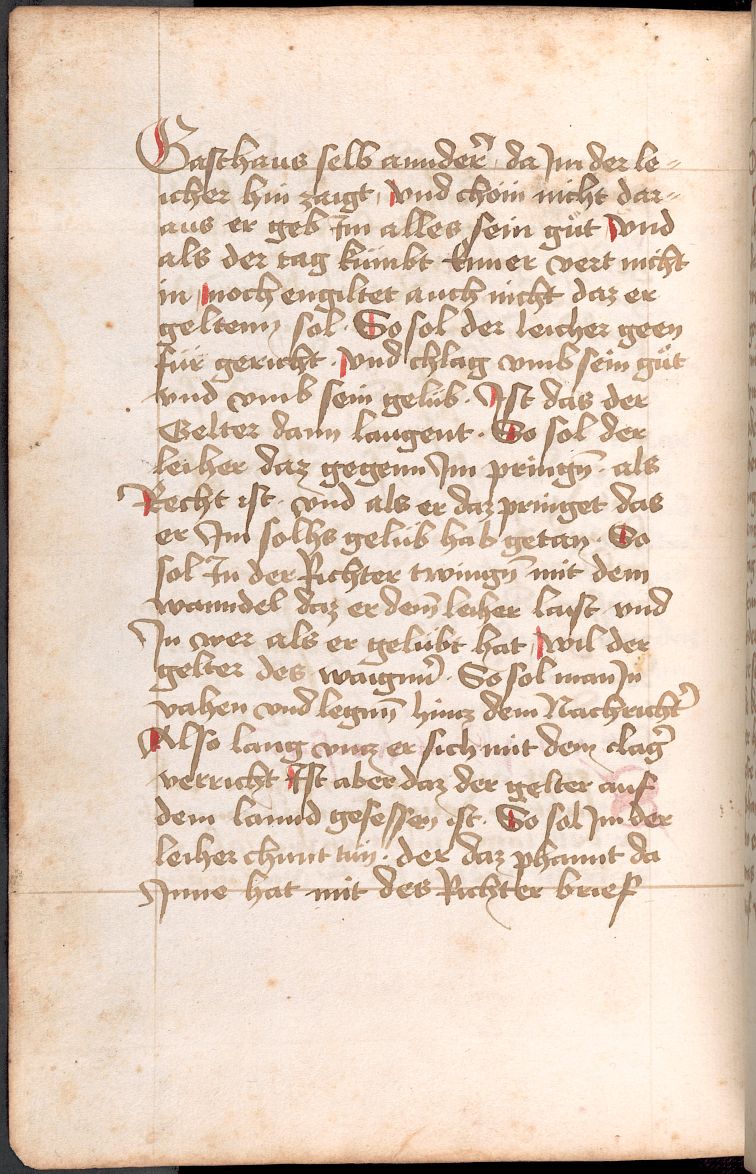 Gasthaus selb annder̄ da Im der le=
icher hin zaigt, vnd chöm nicht dar=
aus er geb Im alles sein güt vnd
als der tag kümbt Enner vert nicht
in, noch engiltet auch nicht daz er
geltenn sol. So sol der leicher geen
für gericht. vnd chlag vmb sein güt
vnd vmb sein gelüb. Ist das der
Gelter dann laugent. So sol der
leiher daz gegenn Im pringn̄. als
Recht ist. vnd als er daz pringet das
er Im solhs gelüb hab getan. So
sol In der Richter twingn̄ mit dem
wanndel daz er dem̄ leiher laist vnd
In wer als er gelübt hat, wil der
gelter des waignn̄. So sol man In
vahen vnd legnn̄ hincz dem Nachricht̄
Also lang vncz er sich mit dem claḡ
verricht Ist aber daz der gelter auf
dem lannd gesessen ist. So sol Im der
leiher chunt tün. der daz phannt da
Inne hat mit des Richter brief